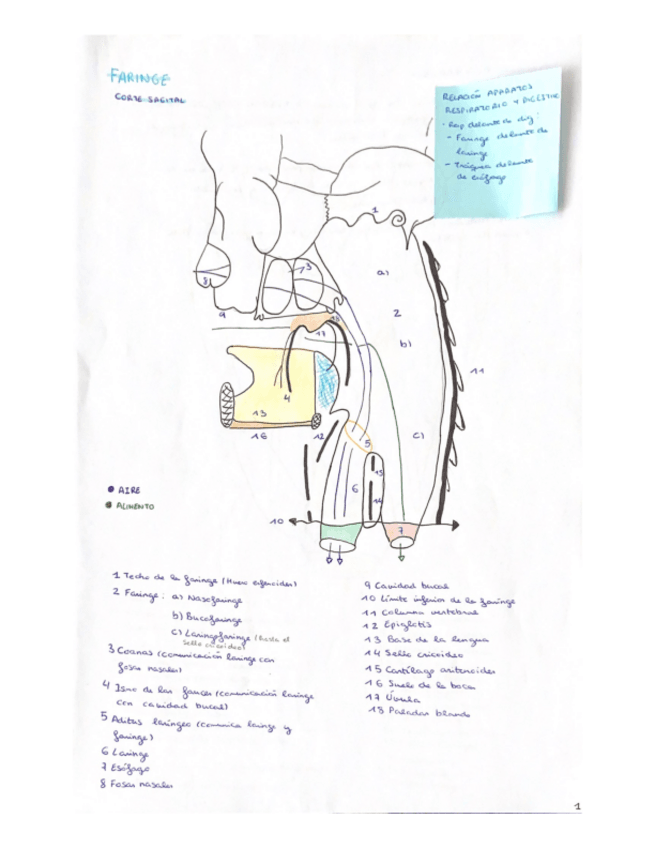 FARINGE
CORTE SAGITAL
RELACIÓN APARATOS
RESPIRATORIO Y DIGESTIVO
- Resp delante de dig:
- Faringe delante de
laringe
- Tráquea delante
de esófago
1
3
8
a)
9
2
18
17
b)
11
4
13
16
12
5
c)
15
6
14
AIRE
ALIMENTO
10
7
1 Techo de la faringe (Hueso esfenoides)
2 Faringe: a) Nasofaringe
b) Bucofaringe
c) Laringofaringe (hasta el
sello cricoideo)
3 Coanas (comunicación faringe con
fosas nasales)
4 Ismo de las fauces (comunicación faringe
con cavidad bucal)
5 Aditus laríngeo (comunica laringe y
faringe)
6 Laringe
7 Esófago
8 Fosas nasales
9 Cavidad bucal
10 Límite inferior de la faringe
11 Columna vertebral
12 Epiglotis
13 Base de la lengua
14 Sello cricoideo
15 Cartílago aritenoides
16 Suelo de la boca
17 Úvula
18 Paladar blando
1